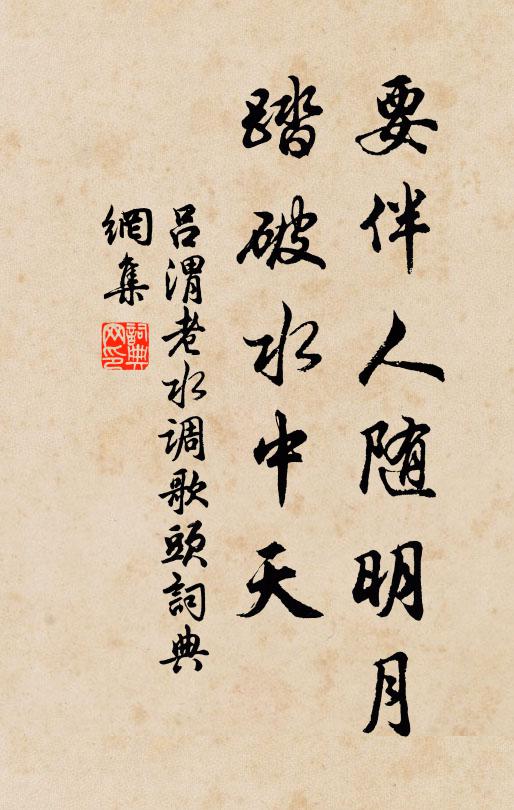 要伴人随明月
踏破水中天
吕渭老水调歌頭詞典
網集
詞典
网印